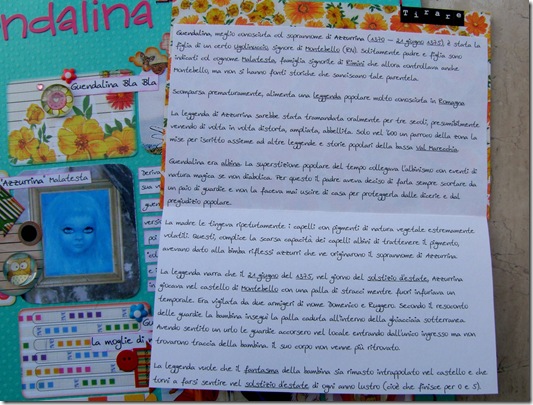 ndalina
Tirare
Guendalina, meglio conosciuta col soprannome di Azzurrina (1370 – 21 giugno 1375), è stata la
figlia di un certo Ugolinuccio, signore di Montebello (RN). Solitamente padre e figlia sono
indicati col cognome Malatesta, famiglia signorile di Rimini che allora controllava anche
Montebello, ma non si hanno fonti storiche che sanciscano tale parentela.
Scomparsa prematuramente, alimenta una leggenda popolare molto conosciuta in Romagna.
La leggenda di Azzurrina sarebbe stata tramandata oralmente per tre secoli, presumibilmente
venendo di volta in volta distorta, ampliata, abbellita. Solo nel '600 un parroco della zona la
mise per iscritto assieme ad altre leggende e storie popolari della bassa Val Marecchia.
Guendalina era albina. La superstizione popolare del tempo collegava l'albinismo con eventi di
natura magica se non diabolica. Per questo il padre aveva deciso di farla sempre scortare da
un paio di guardie e non la faceva mai uscire di casa per proteggerla dalle dicerie e dal
pregiudizio popolare.
La madre le tingeva ripetutamente i capelli con pigmenti di natura vegetale estremamente
volatili. Questi, complice la scarsa capacità dei capelli albini di trattenere il pigmento,
avevano dato alla bimba riflessi azzurri che ne originarono il soprannome di Azzurrina.
La leggenda narra che il 21 giugno del 1375, nel giorno del solstizio d'estate, Azzurrina
giocava nel castello di Montebello con una palla di stracci mentre fuori infuriava un
temporale. Era vigilata da due armigeri di nome Domenico e Ruggero. Secondo il resoconto
delle guardie la bambina inseguì la palla caduta all'interno della ghiacciaia sotterranea.
Avendo sentito un urlo le guardie accorsero nel locale entrando dall'unico ingresso ma non
trovarono traccia della bambina. Il suo corpo non venne più ritrovato.
La leggenda vuole che il fantasma della bambina sia rimasto intrappolato nel castello e che
torni a farsi sentire nel solstizio d'estate di ogni anno lustro (cioè che finisce per 0 e 5).
Guendalina Bla Bla
"Azzurrina" Malatesta
Deriva
sua v
versi
La moglie di